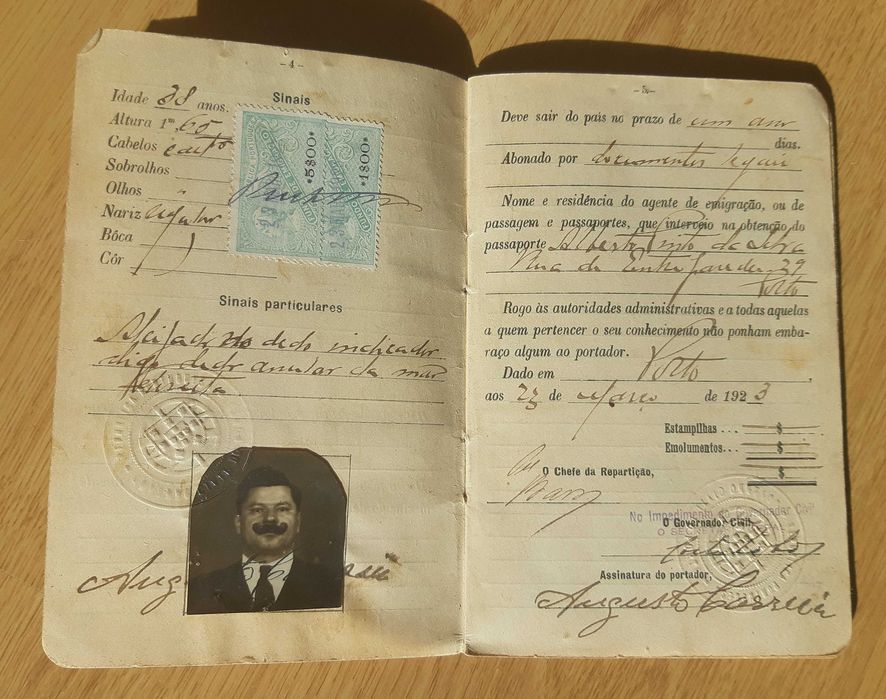 -4-
Sinais
Idade 38 anos.
Altura 1m, 65
Cabelos
Sobrolhos
Olhos "
Nariz regular
Bôca
Côr
*5$00*
*1$00*
Sinais particulares
Aleijado do dedo indicador
digo dedo anular da mão
direita.
Augusto Correia
-5-
Deve sair do país no prazo de um ano
dias.
Abonado por documentos legais
Nome e residência do agente de emigração, ou de
passagem e passaportes, que interveio na obtenção do
passaporte Alberto Pinto da Silva
Rua de Entreparedes, 29
Porto
Rogo às autoridades administrativas e a todas aquelas
a quem pertencer o seu conhecimento não ponham emba-
raço algum ao portador.
Dado em Porto
aos 23 de Março de 1923
Estampilhas... $
Emolumentos... $
$
O Chefe da Repartição,
No Impedimento do Governador Civil
O Governador Civil,
Assinatura do portador,
Augusto Correia